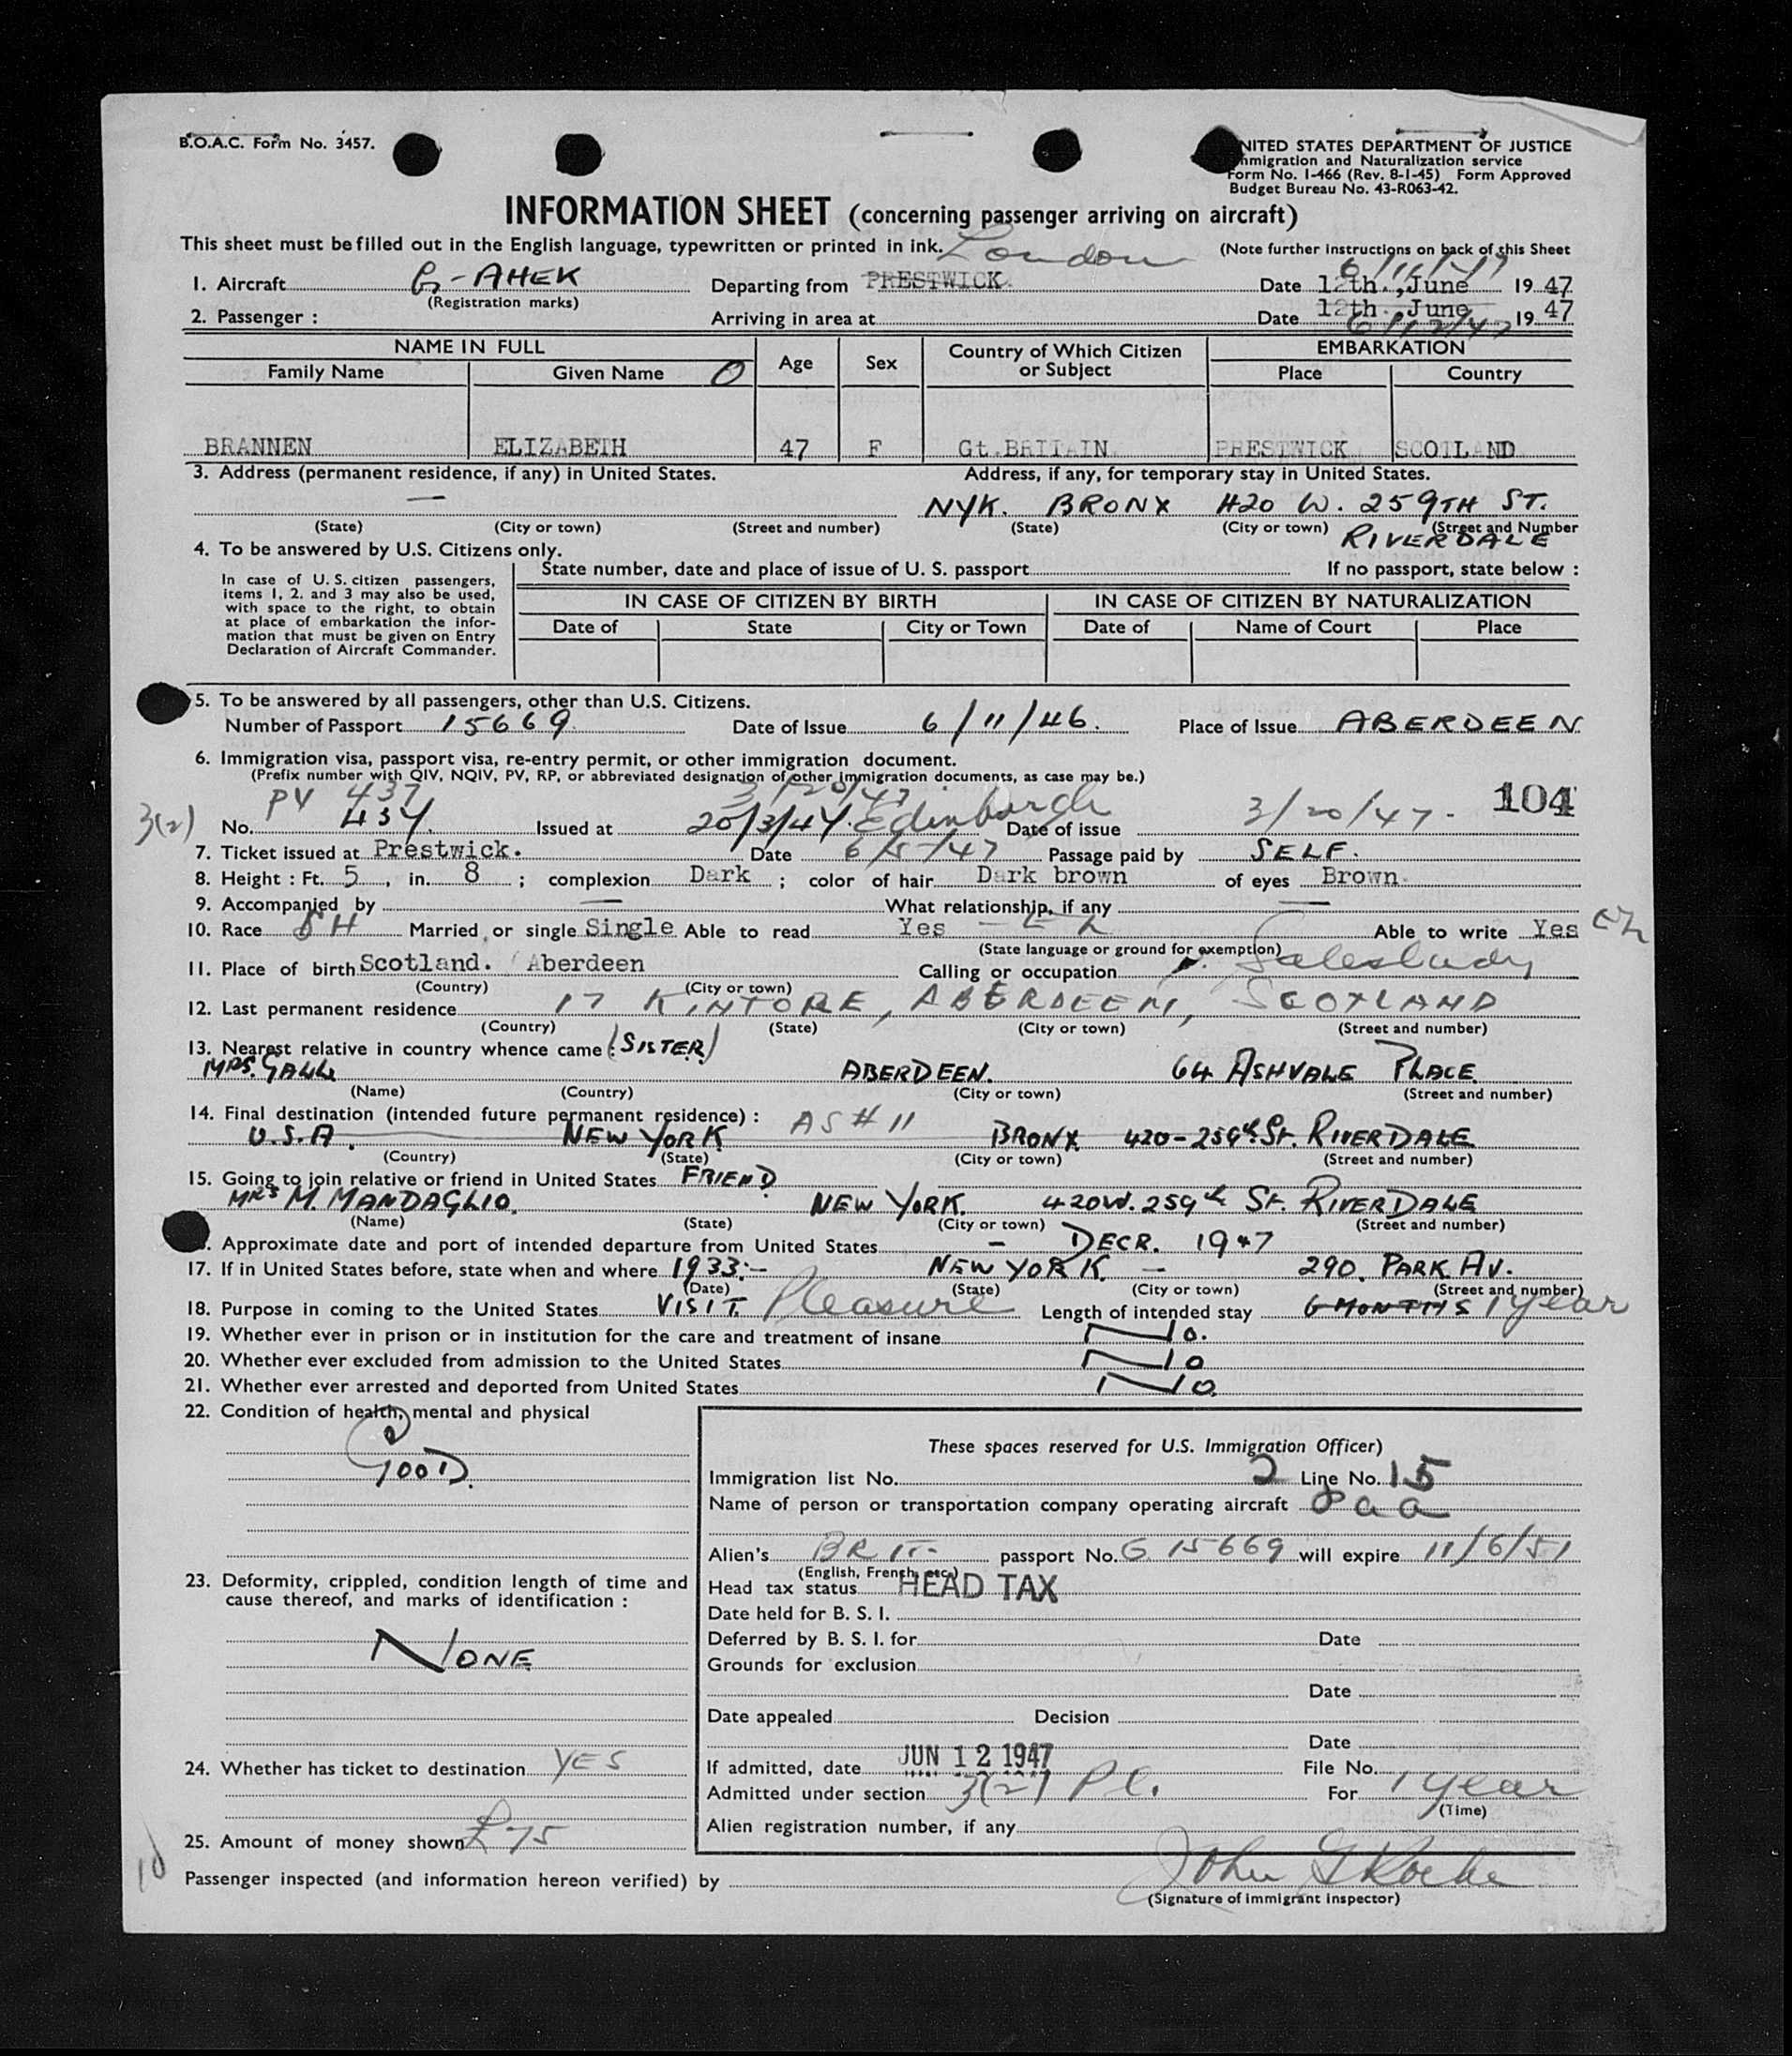 B.O.A.C. Form No. 3457.
NITED STATES DEPARTMENT OF JUSTICE
mmigration and Naturalization service
Form No. I-466 (Rev. 8-1-45) Form Approved
Budget Bureau No. 43-R063-42.
INFORMATION SHEET (concerning passenger arriving on aircraft)
This sheet must be filled out in the English language, typewritten or printed in ink. London (Note further instructions on back of this Sheet
1. Aircraft G-AHEK Departing from PRESTWICK Date 12th., June 19 47
(Registration marks)
2. Passenger : Arriving in area at Date 12th., June 6/12/47 19 47
NAME IN FULL Age Sex Country of Which Citizen or Subject EMBARKATION
Family Name Given Name O Place Country
BRANNEN ELIZABETH 47 F Gt.BRITAIN. PRESTWICK SCOTLAND
3. Address (permanent residence, if any) in United States. Address, if any, for temporary stay in United States.
— NYK. BRONX 420 W. 259TH ST.
(State) (City or town) (Street and number) (State) (City or town) (Street and Number
RIVERDALE
4. To be answered by U.S. Citizens only.
State number, date and place of issue of U. S. passport If no passport, state below :
In case of U.S. citizen passengers,
items 1, 2. and 3 may also be used,
with space to the right, to obtain
at place of embarkation the infor-
mation that must be given on Entry
Declaration of Aircraft Commander.
IN CASE OF CITIZEN BY BIRTH IN CASE OF CITIZEN BY NATURALIZATION
Date of State City or Town Date of Name of Court Place
5. To be answered by all passengers, other than U.S. Citizens.
Number of Passport 15669. Date of Issue 6/11/46. Place of Issue ABERDEEN
6. Immigration visa, passport visa, re-entry permit, or other immigration document.
(Prefix number with QIV, NQIV, PV, RP, or abbreviated designation of other immigration documents, as case may be.)
PV 437 3/20/47 104
3(2) No. 437. Issued at 20/3/47. Edinburgh Date of issue 3/20/47.
7. Ticket issued at Prestwick. Date 6/5/47 Passage paid by SELF.
8. Height : Ft. 5 , in. 8 ; complexion Dark ; color of hair Dark brown of eyes Brown.
9. Accompanied by — What relationship, if any —
10. Race SH Married or single Single Able to read Yes Able to write Yes
(State language or ground for exemption)
11. Place of birth Scotland. Aberdeen Calling or occupation Saleslady
(Country) (City or town)
12. Last permanent residence 17 KINTORE, ABERDEEN, SCOTLAND
(Country) (State) (City or town) (Street and number)
13. Nearest relative in country whence came : (SISTER)
MRS. GALL ABERDEEN. 64 ASHVALE PLACE.
(Name) (Country) (City or town) (Street and number)
14. Final destination (intended future permanent residence) : AS # 11
U.S.A. NEW YORK BRONX 420-259th St. RIVERDALE
(Country) (State) (City or town) (Street and number)
15. Going to join relative or friend in United States FRIEND
MRS M. MANDAGLIO. NEW YORK. 420W. 259th St. RIVERDALE
(Name) (State) (City or town) (Street and number)
. Approximate date and port of intended departure from United States — DECR. 1947
17. If in United States before, state when and where 1933:— NEW YORK. — 290. PARK AV.
(Date) (State) (City or town) (Street and number)
18. Purpose in coming to the United States VISIT. Pleasure Length of intended stay 6 MONTHS 1 year
19. Whether ever in prison or in institution for the care and treatment of insane No.
20. Whether ever excluded from admission to the United States No
21. Whether ever arrested and deported from United States No.
22. Condition of health, mental and physical
GOOD.
These spaces reserved for U.S. Immigration Officer)
Immigration list No. 2 Line No. 15
Name of person or transportation company operating aircraft
Alien's BRIT. passport No. G 15669 will expire 11/6/51
(English, French, etc.)
23. Deformity, crippled, condition length of time and
cause thereof, and marks of identification :
NONE
Head tax status HEAD TAX
Date held for B. S. I.
Deferred by B. S. I. for Date
Grounds for exclusion
Date
Date appealed Decision
Date
24. Whether has ticket to destination YES
If admitted, date JUN 12 1947 File No.
Admitted under section 3(2) Pl. For 1 year
(Time)
Alien registration number, if any
25. Amount of money shown £75
Passenger inspected (and information hereon verified) by John G Roche
(Signature of immigrant inspector)